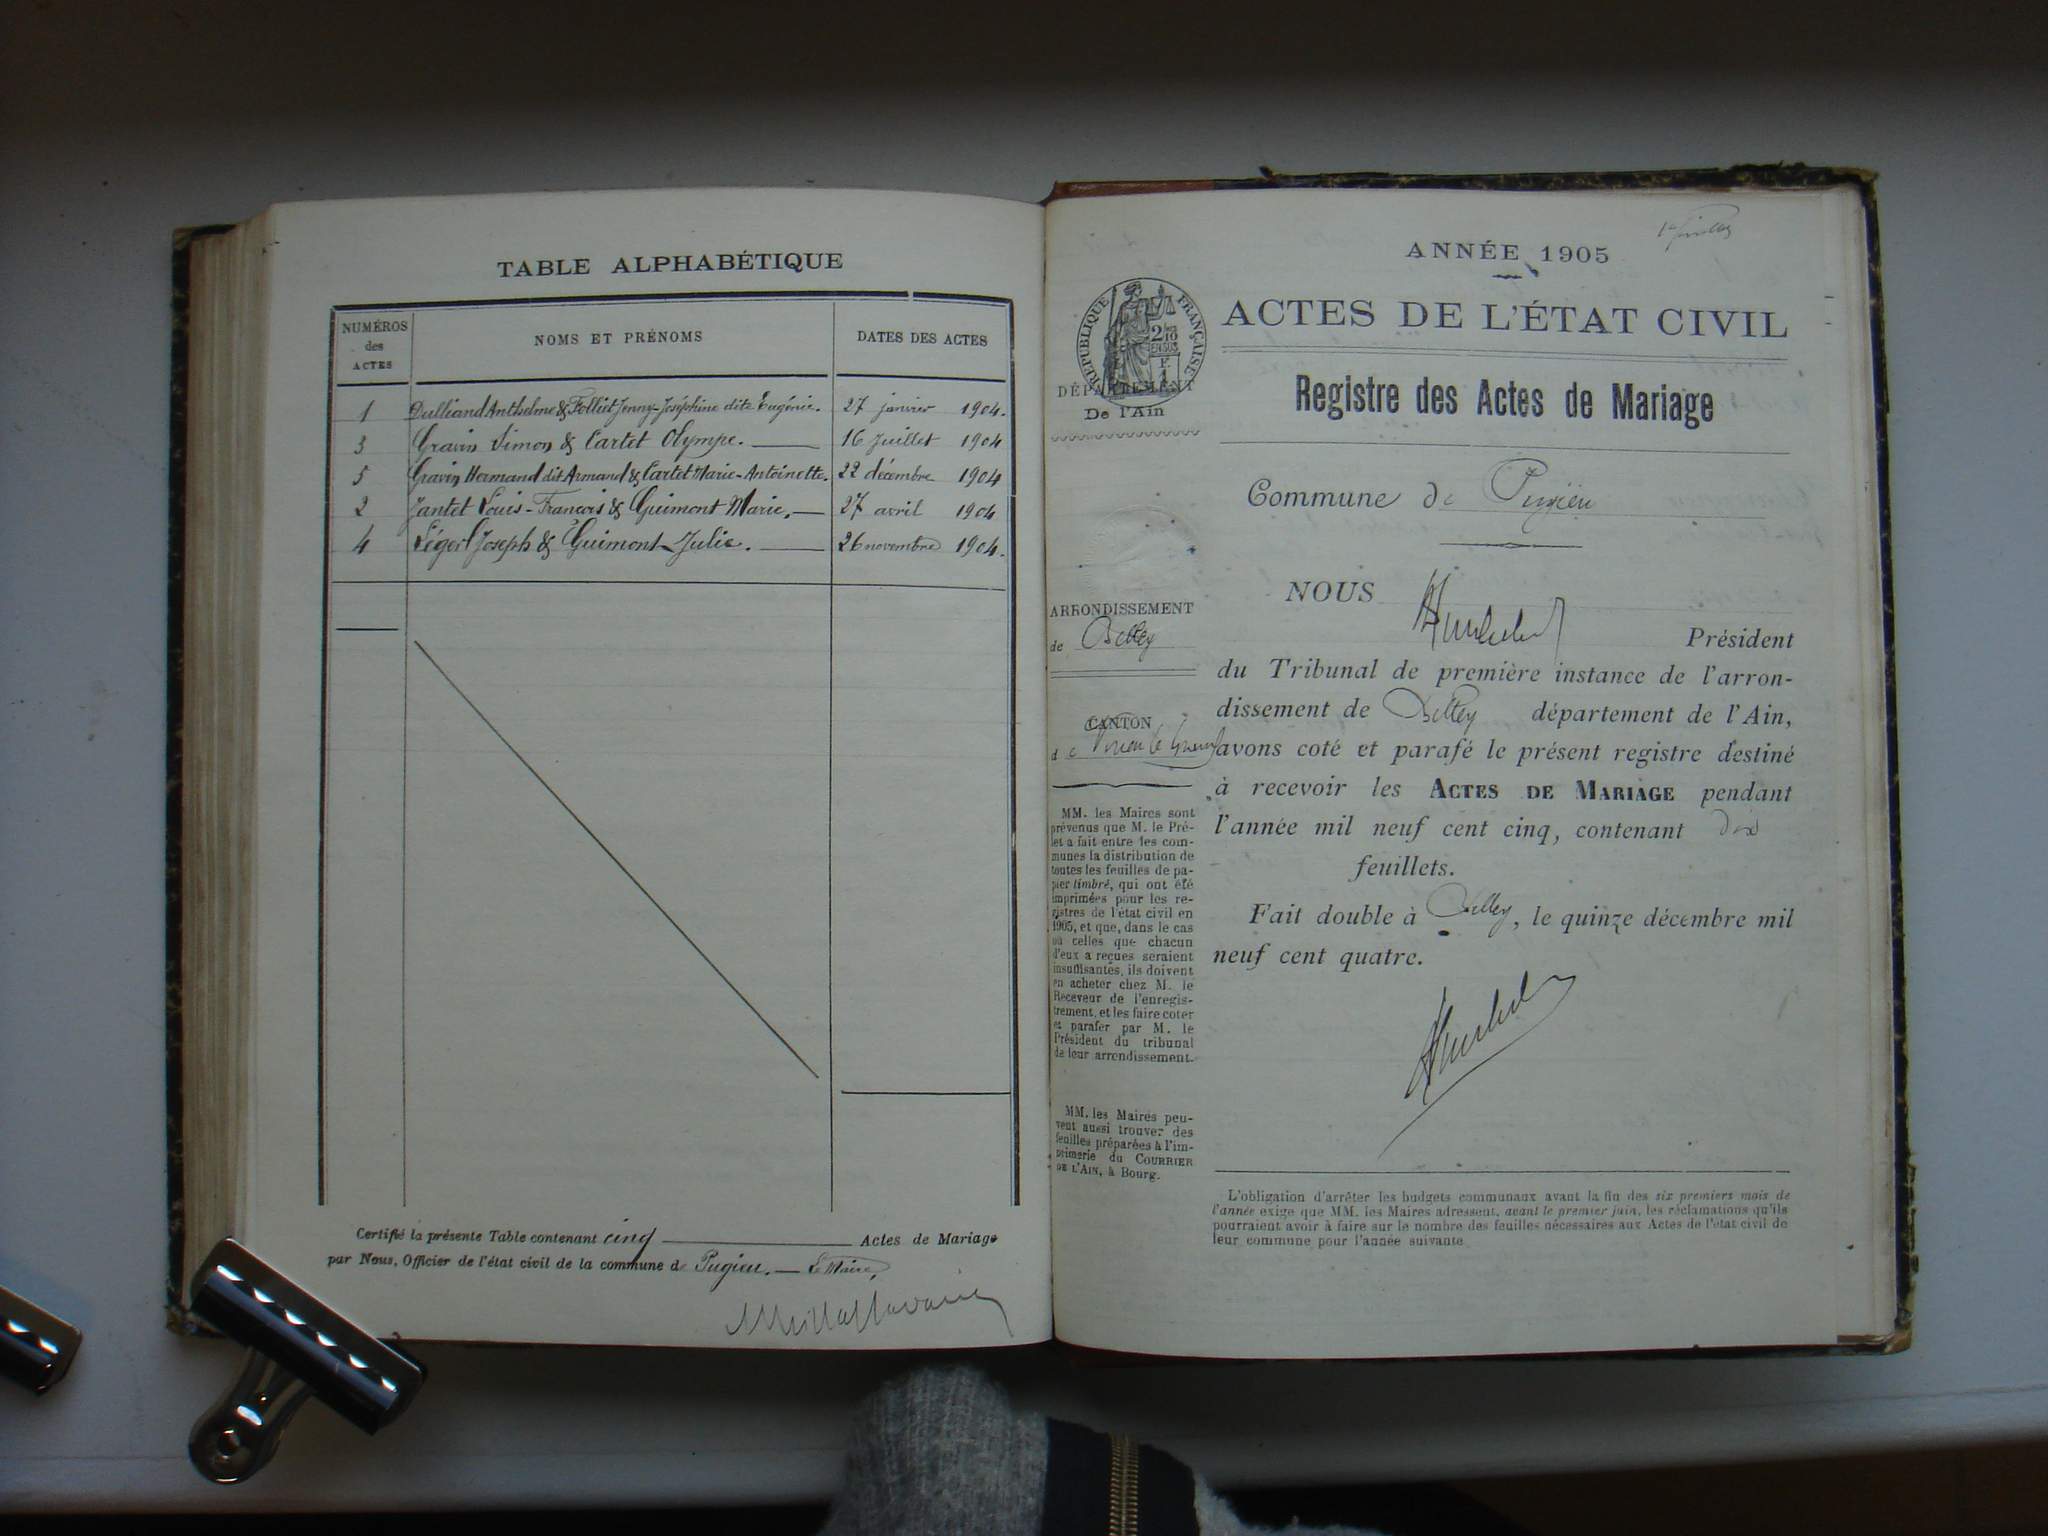 TABLE ALPHABÉTIQUE
NUMÉROS des ACTES NOMS ET PRÉNOMS DATES DES ACTES
1 Dulliand Anthelme & Folliet Jenny-Joséphine dite Eugénie. 27 janvier 1904.
3 Gravin Simon & Cartet Olympe. 16 Juillet 1904
5 Gravin Hermand dit Armand & Cartet Marie-Antoinette. 22 décembre 1904
2 Jantet Louis-François & Guimont Marie. 27 avril 1904
4 Léger Joseph & Guimont Julie. 26 novembre 1904.
Certifié la présente Table contenant cinq Actes de Mariage
par Nous, Officier de l'état civil de la commune de Pugieu. — Le Maire,
ANNÉE 1905
ACTES DE L'ÉTAT CIVIL
RÉPUBLIQUE FRANÇAISE
DÉPARTEMENT
De l'Ain
Registre des Actes de Mariage
Commune de Pugieu
ARRONDISSEMENT
de Belley
CANTON
de Virieu le Grand
MM. les Maires sont
prévenus que M. le Pré-
fet a fait entre les com-
munes la distribution de
toutes les feuilles de pa-
pier timbré, qui ont été
imprimées pour les re-
gistres de l'état civil en
1905, et que, dans le cas
où celles que chacun
d'eux a reçues seraient
insuffisantes, ils doivent
en acheter chez M. le
Receveur de l'enregis-
trement, et les faire coter
et parafer par M. le
Président du tribunal
de leur arrondissement.
MM. les Maires peu-
vent aussi trouver des
feuilles préparées à l'im-
primerie du COURRIER
DE L'AIN, à Bourg.
NOUS
Président
du Tribunal de première instance de l'arron-
dissement de Belley département de l'Ain,
avons coté et parafé le présent registre destiné
à recevoir les ACTES DE MARIAGE pendant
l'année mil neuf cent cinq, contenant dix
feuillets.
Fait double à Belley, le quinze décembre mil
neuf cent quatre.
L'obligation d'arrêter les budgets communaux avant la fin des six premiers mois de
l'année exige que MM. les Maires adressent, avant le premier juin, les réclamations qu'ils
pourraient avoir à faire sur le nombre des feuilles nécessaires aux Actes de l'état civil de
leur commune pour l'année suivante